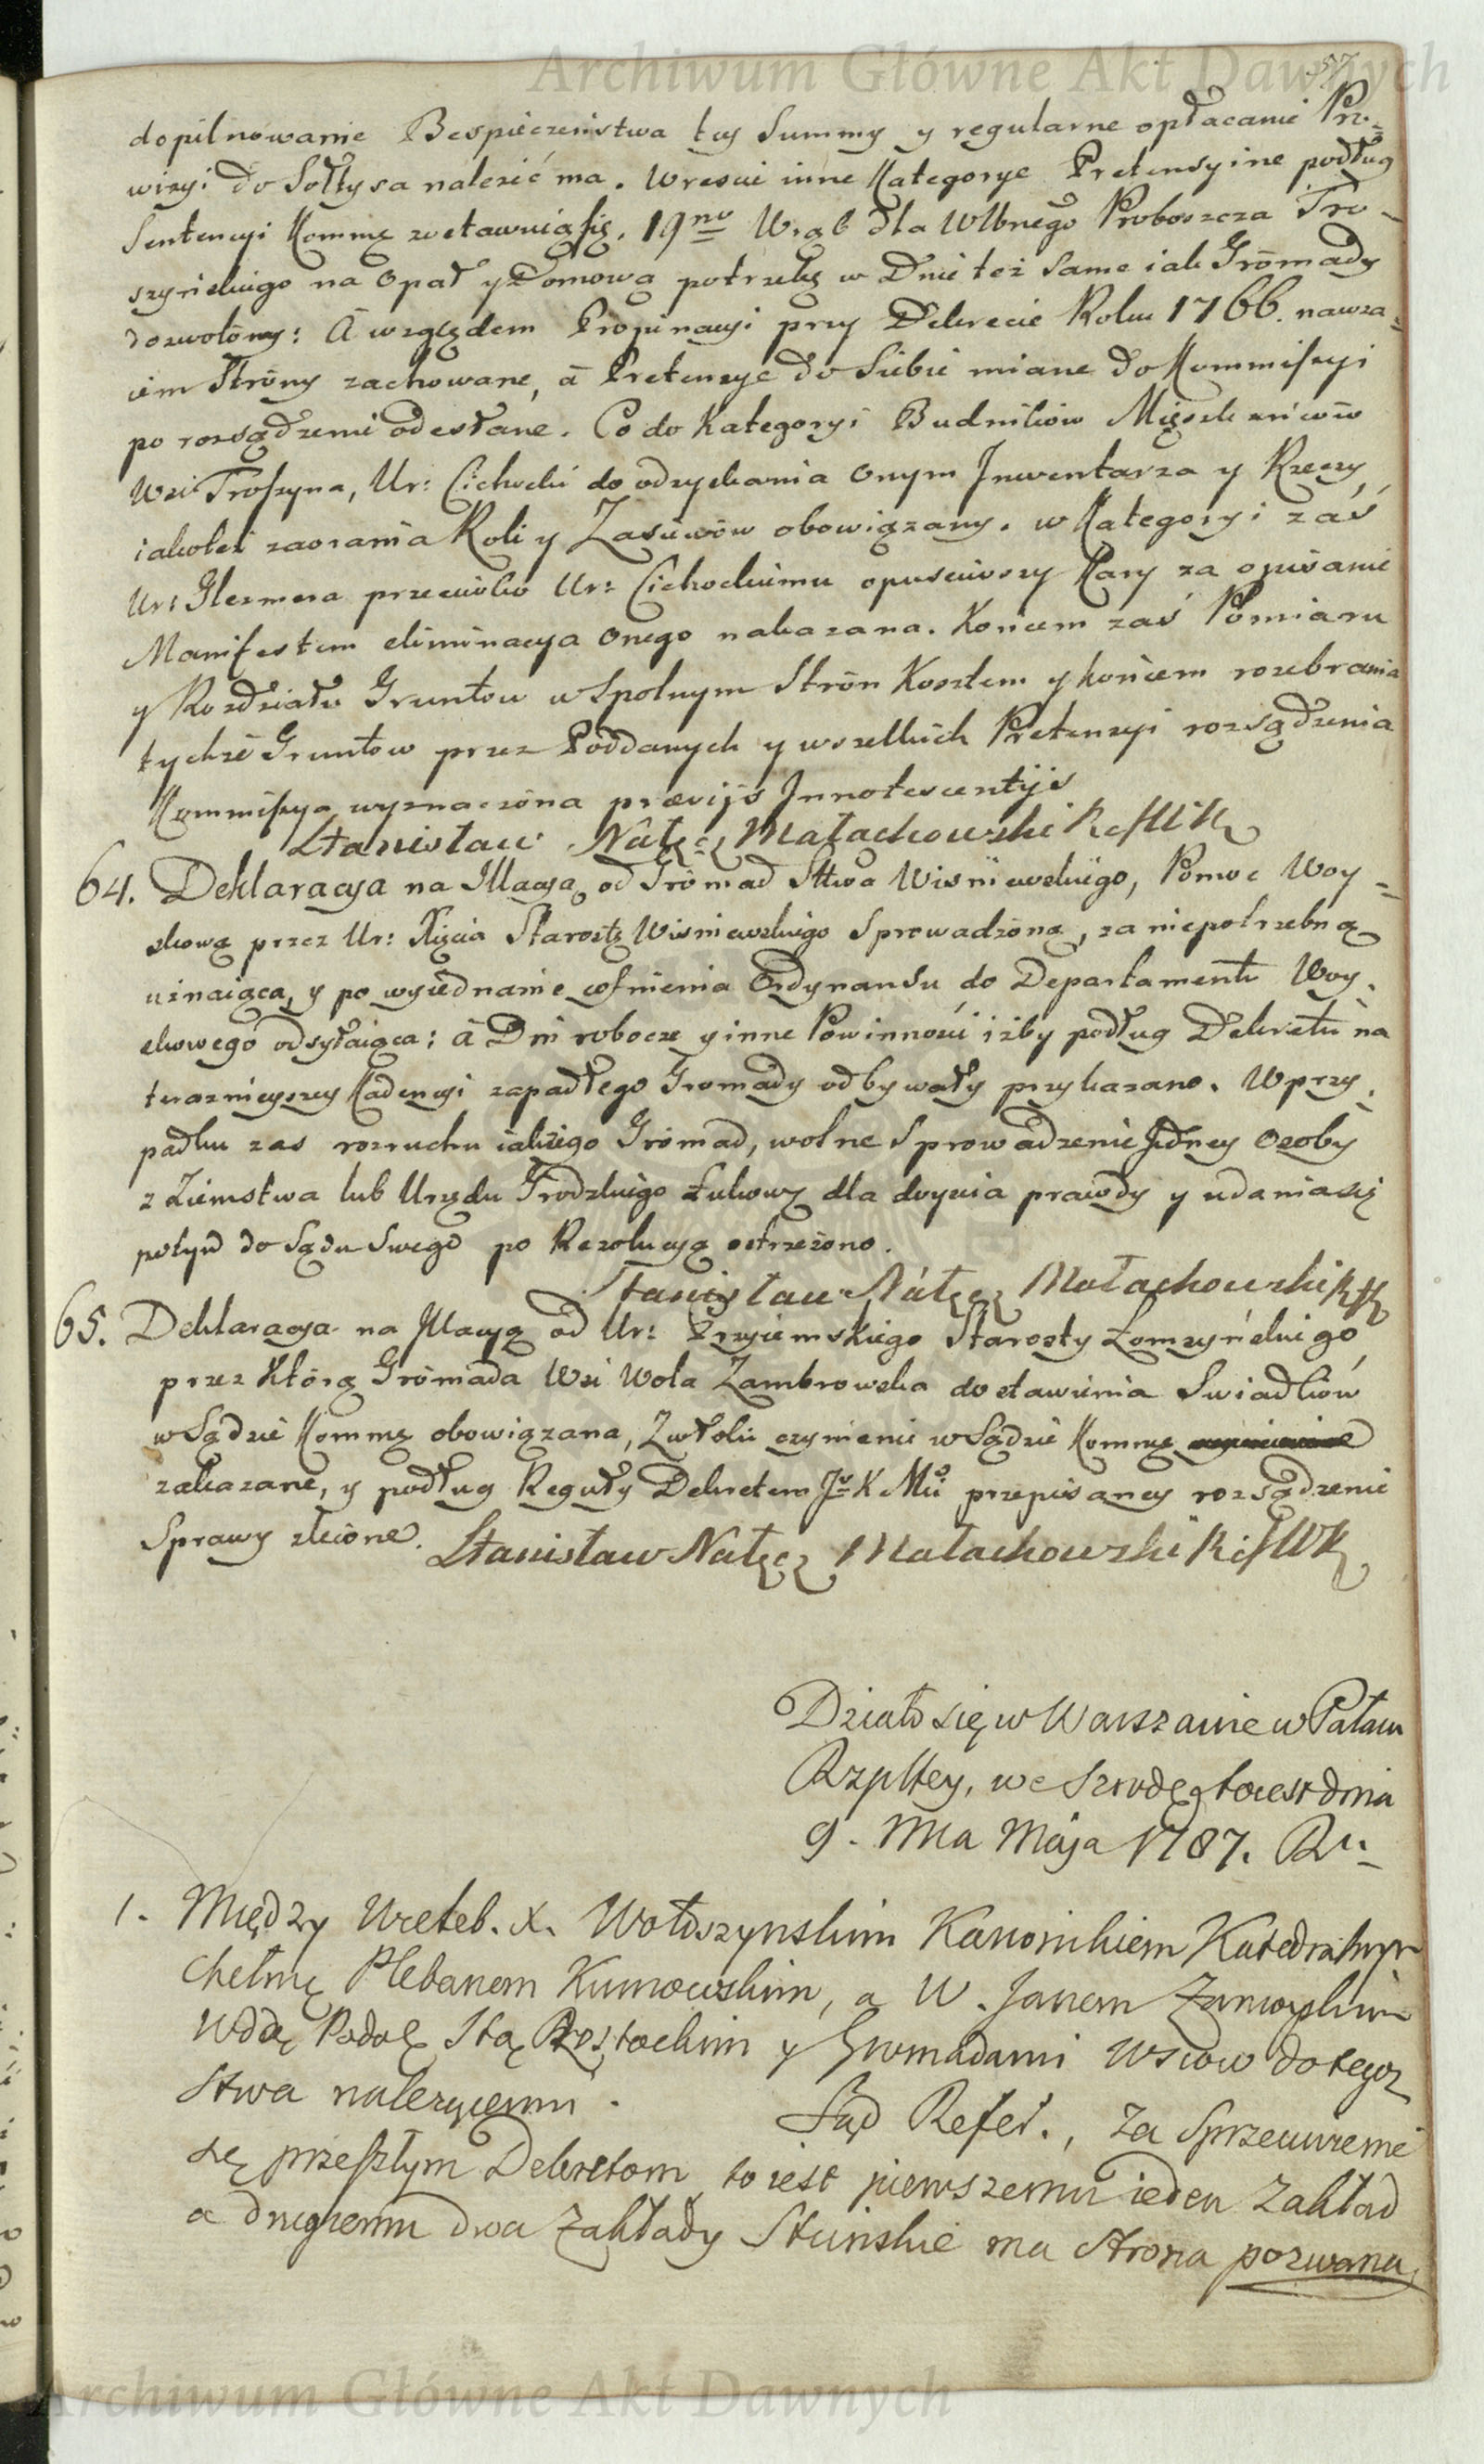 Archiwum Główne Akt Dawnych
dopilnowanie Bespieczeństwa tey Summy y regularne opłacanie Pro=
wizyi do Sołtysa należić ma. Wreście inne Kategorye Pretensyine podług
Sentencyi Kommę zostawuią się. 19no Wrąb dla Wlbnego Proboszcza Tro-
szyńskiego na Opał y Domową potrzebę w Dnie też same iak Gromady
dozwolony: A względem Propinacyi przy Dekrecie Roku 1766. nawza=
iem Strony zachowane, a Pretensye do Siebie miane do Kommissyi
po rozsądzenie odesłane. Co do Kategoryi Budników Mięszkańców
Wsi Troszyna, Ur: Cichocki do odzyskania Onym Inwentarza y Rzeczy
iakoteż zaorania Roli y Zasiewów obowiązany. w Kategoryi zaś
Ur: Glezmera przeciwko Ur: Cichockiemu opuściwszy Kary za opisanie
Manifestem eliminacya Onego nakazana. Końcem zaś Pomiaru
y Rozdziału Gruntow wspolnym Stron Kosztem y końcem rozebrania
tychże Gruntow przez Poddanych y wszelkich Pretensyi rozsądzenia
Kommissya wyznaczona prævijs Innotescentijs
Stanisław Nałęcz Małachowski R
64. Deklaracya na Illacyą od Gromad Sttwa Wisniewskiego, Pomoc Woy=
skową przez Ur: Xięcia Starostę Wisniewskiego Sprowadzoną, za niepotrzebną
uznaiąca, y po wyiednanie cofnienia Ordynansu do Departamentu Woy.
skowego odsyłaiąca; a Dni robocze y inne Powinności iżby podług Dekretu na
teraznieyszey Kadencyi zapadłego Gromady odbywały przykazano. W przy.
padku zas rozruchu iakiego Gromad, wolne Sprowadzenie Jedney Osoby
z Ziemstwa lub Urzędu Grodzkiego Łukowę dla doyscia prawdy y udania się
potym do Sądu Swego po Rezolucyą ostrzeżono.
Stanisław Nałęcz Małachowski R
65. Deklaracya na Illacyą od Ur: Przyiemskiego Starosty Łomzyńskiego
przez Którą Gromada Wsi Wola Zambrowska do stawienia Swiadków
w Sądzie Kommę obowiązana, Zwłoki czynienie w Sądzie Kommę
zakazane, y podług Reguły Dekretem J K Mci przepisaney rozsądzenie
Sprawy zlecone. Stanisław Nałęcz Małachowski R
Działo się w Warszawie w Pałacu
Rzpltey, we Srzodę to iest dnia
9. Mca Maja 1787. Ru.
1. Między Wieleb. X. Wołoszynskim Kanonikiem Katedralnym
Chełmę Plebanem Kumowskim, a W. Janem Zamoyskim
Wdą Podolę Stą Rostockim y Gromadami Wsiow do tegoz
Stwa nalezącemi. Sąd Refer., za Sprzeciwienie
się przeszłym Dekretom, to iest pierwszemu ieden Zakład
a drugiemu dwa Zakłady Stuinskie ma strona pozwana,
Archiwum Główne Akt Dawnych